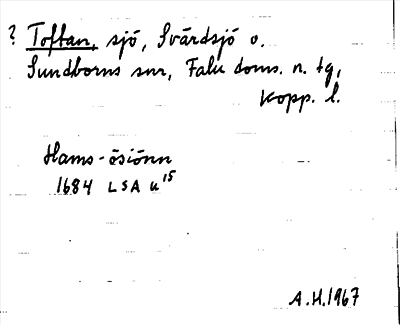 ? Toftan, sjö, Svärdsjö o.
Sundborns snr, Falu doms. n. tg,
Kopp. l.
Hams-ösiönn
1684 LSA u15
A.H.1967